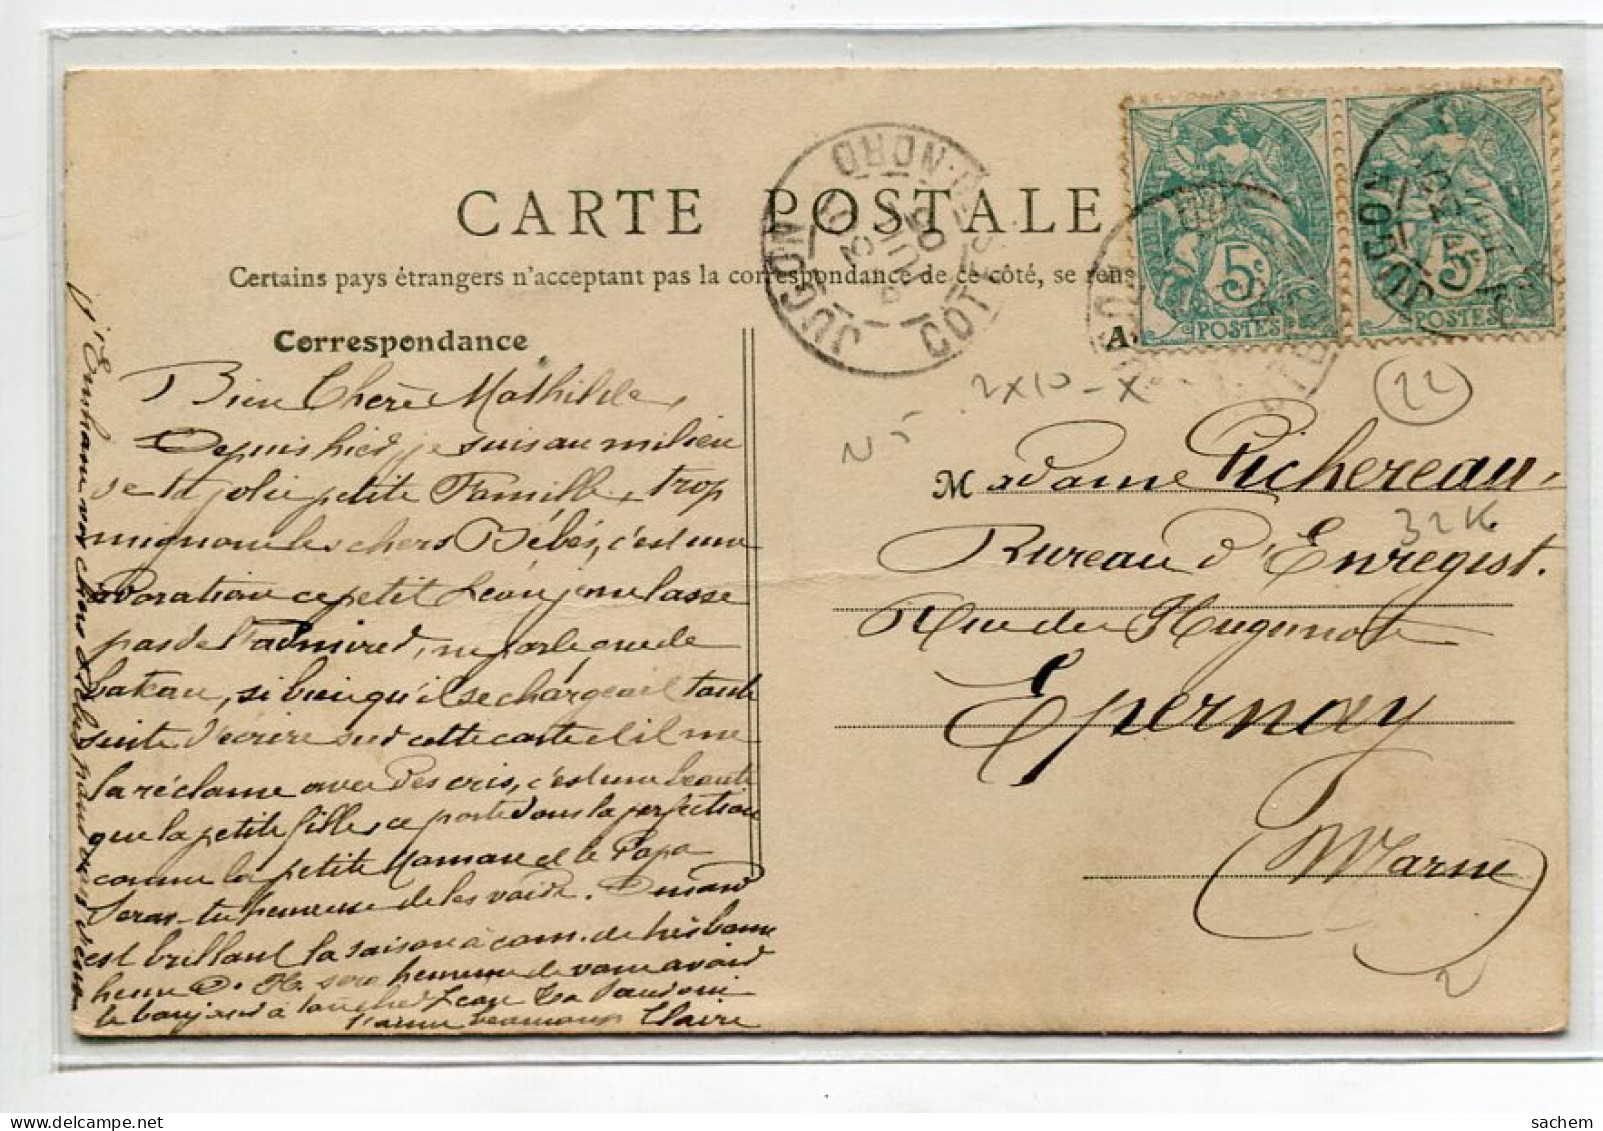 CARTE POSTALE
Certains pays étrangers n'acceptant pas la correspondance de ce côté, se rens
Correspondance
Bien Chère Mathilde,
Depuis hier, je suis au milieu
de ta jolie petite Famille, trop
mignons les chers Bébés, c'est une
adoration ce petit Léon, je ne lasse
pas de l'admirer, ne parle que de
bateau, si bien qu'il se chargeait toute
suite d'écrire sur cette carte et il me
la réclame avec des cris, c'est une beauté
que la petite fille, ce porte dans la perfection
comme la petite Maman et le Papa
Seras-tu heureuse de les voir.
est brillant la saison à com. de très bonne
heure sera heureuse de vous avoir
le bonjour à
t'aime beaucoup Claire
vos chers Bébés pour vous
JUGON
COTES-DU-NORD
5c
POSTES
5c
POSTES
JUGON
A
2X10-X
N5
22
Madame Pichereau
32K
Bureau d'Enregist.
Rue des Huguenots
Epernay
(Marne)
N
sachem